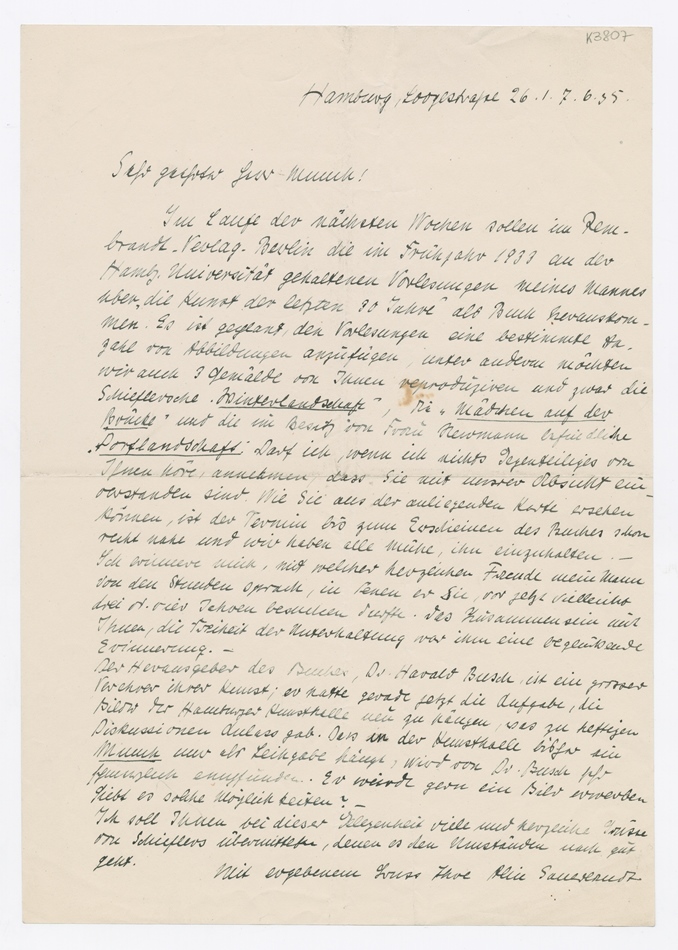 K3807
Hamburg, Loogestraße 26. 1. 7.6.35.
Sehr geehrter Herr Munch!
Im Laufe der nächsten Wochen sollen im Rem-
brandt-Verlag-Berlin die im Frühjahr 1933 an der
Hambg. Universität gehaltenen Vorlesungen meines Mannes
über „die Kunst der letzten 30 Jahre" als Buch herauskom-
men. Es ist geplant, den Vorlesungen eine bestimmte An-
zahl von Abbildungen anzufügen, unter anderm möchten
wir auch 3 Gemälde von Ihnen reproduzieren und zwar die
Schieflersche „Winterlandschaft", die „Mädchen auf der
Brücke" und die im Besitz von Frau Newmann befindliche
„Dorflandschaft". Darf ich, wenn ich nichts Gegenteiliges von
Ihnen höre, annehmen, dass Sie mit unsrer Absicht ein-
verstanden sind. Wie Sie aus der anliegenden Karte ersehen
können, ist der Termin bis zum Erscheinen des Buches schon
recht nahe und wir haben alle Mühe, ihn einzuhalten. –
Ich erinnere mich, mit welcher herzlichen Freude mein Mann
von den Stunden sprach, in denen er Sie, vor jetzt vielleicht
drei od. vier Jahren besuchen durfte. Das Zusammensein mit
Ihnen, die Freiheit der Unterhaltung war ihm eine beglückende
Erinnerung. –
Der Herausgeber des Buches, Dr. Harald Busch, ist ein grosser
Verehrer ihrer Kunst; er hatte gerade jetzt die Aufgabe, die
Bilder der Hamburger Kunsthalle neu zu hängen, was zu heftigen
Diskussionen Anlass gab. Dass in der Kunsthalle bisher ein
Munch nur als Leihgabe hängt, wird von Dr. Busch sehr
schmerzlich empfunden. Er würde gern ein Bild erwerben
Giebt es solche Möglichkeiten? –
Ich soll Ihnen bei dieser Gelegenheit viele und herzliche Grüsse
von Schieflers übermitteln, denen es den Umständen nach gut
geht.
Mit ergebenem Gruss Ihre Alice Sauerlandt